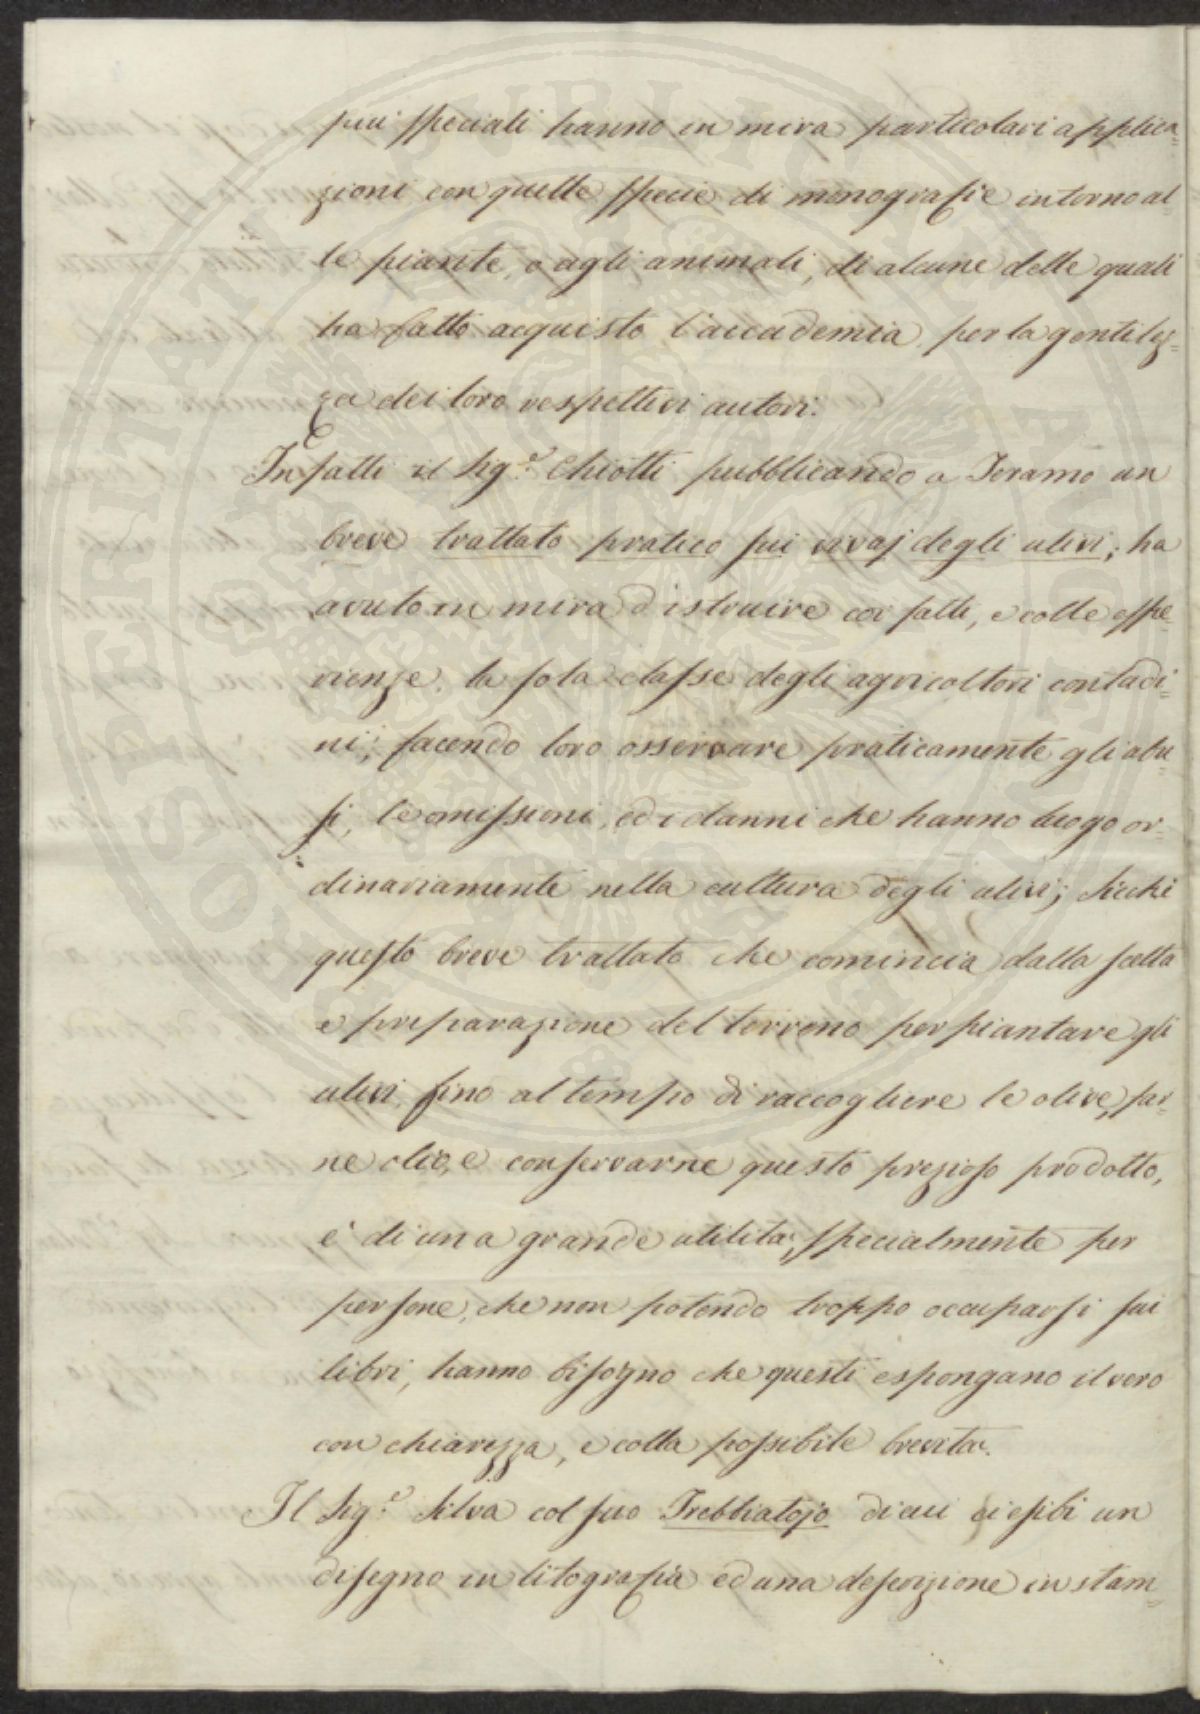 più speciali hanno in mira particolari applica=
zioni con quelle specie di monografie intorno al=
le piante, o agli animali, di alcune delle quali
ha fatto acquisto l'accademia per la gentilez=
za dei loro respettivi autori.
Infatti il Sig.e Chiotti pubblicando a Teramo un
breve trattato pratico sui vivaj degli ulivi; ha
avuto in mira d istruire coi fatti, e colle espe=
rienze la sola classe degli agricoltori contadi=
ni; facendo loro osservare praticamente gli abu=
si, le omissioni, ed i danni che hanno luogo or=
dinariamente nella cultura degli ulivi; sicchè
questo breve trattato che comincia dalla scelta
e preparazione del terreno per piantare gli
ulivi fino al tempo di raccogliere le olive, far=
ne olio, e conservarne questo prezioso prodotto,
è di una grande utilità, specialmente per
persone, che non potendo troppo occuparsi sui
libri, hanno bisogno che questi espongano il vero
con chiarezza, e colla possibile brevità.
Il Sig.e Silva col suo Trebbiatojo di cui ci esibì un
disegno in litografia ed una descrizione in stam=
PROSPERITATI PUBLICAE AUGENDAE